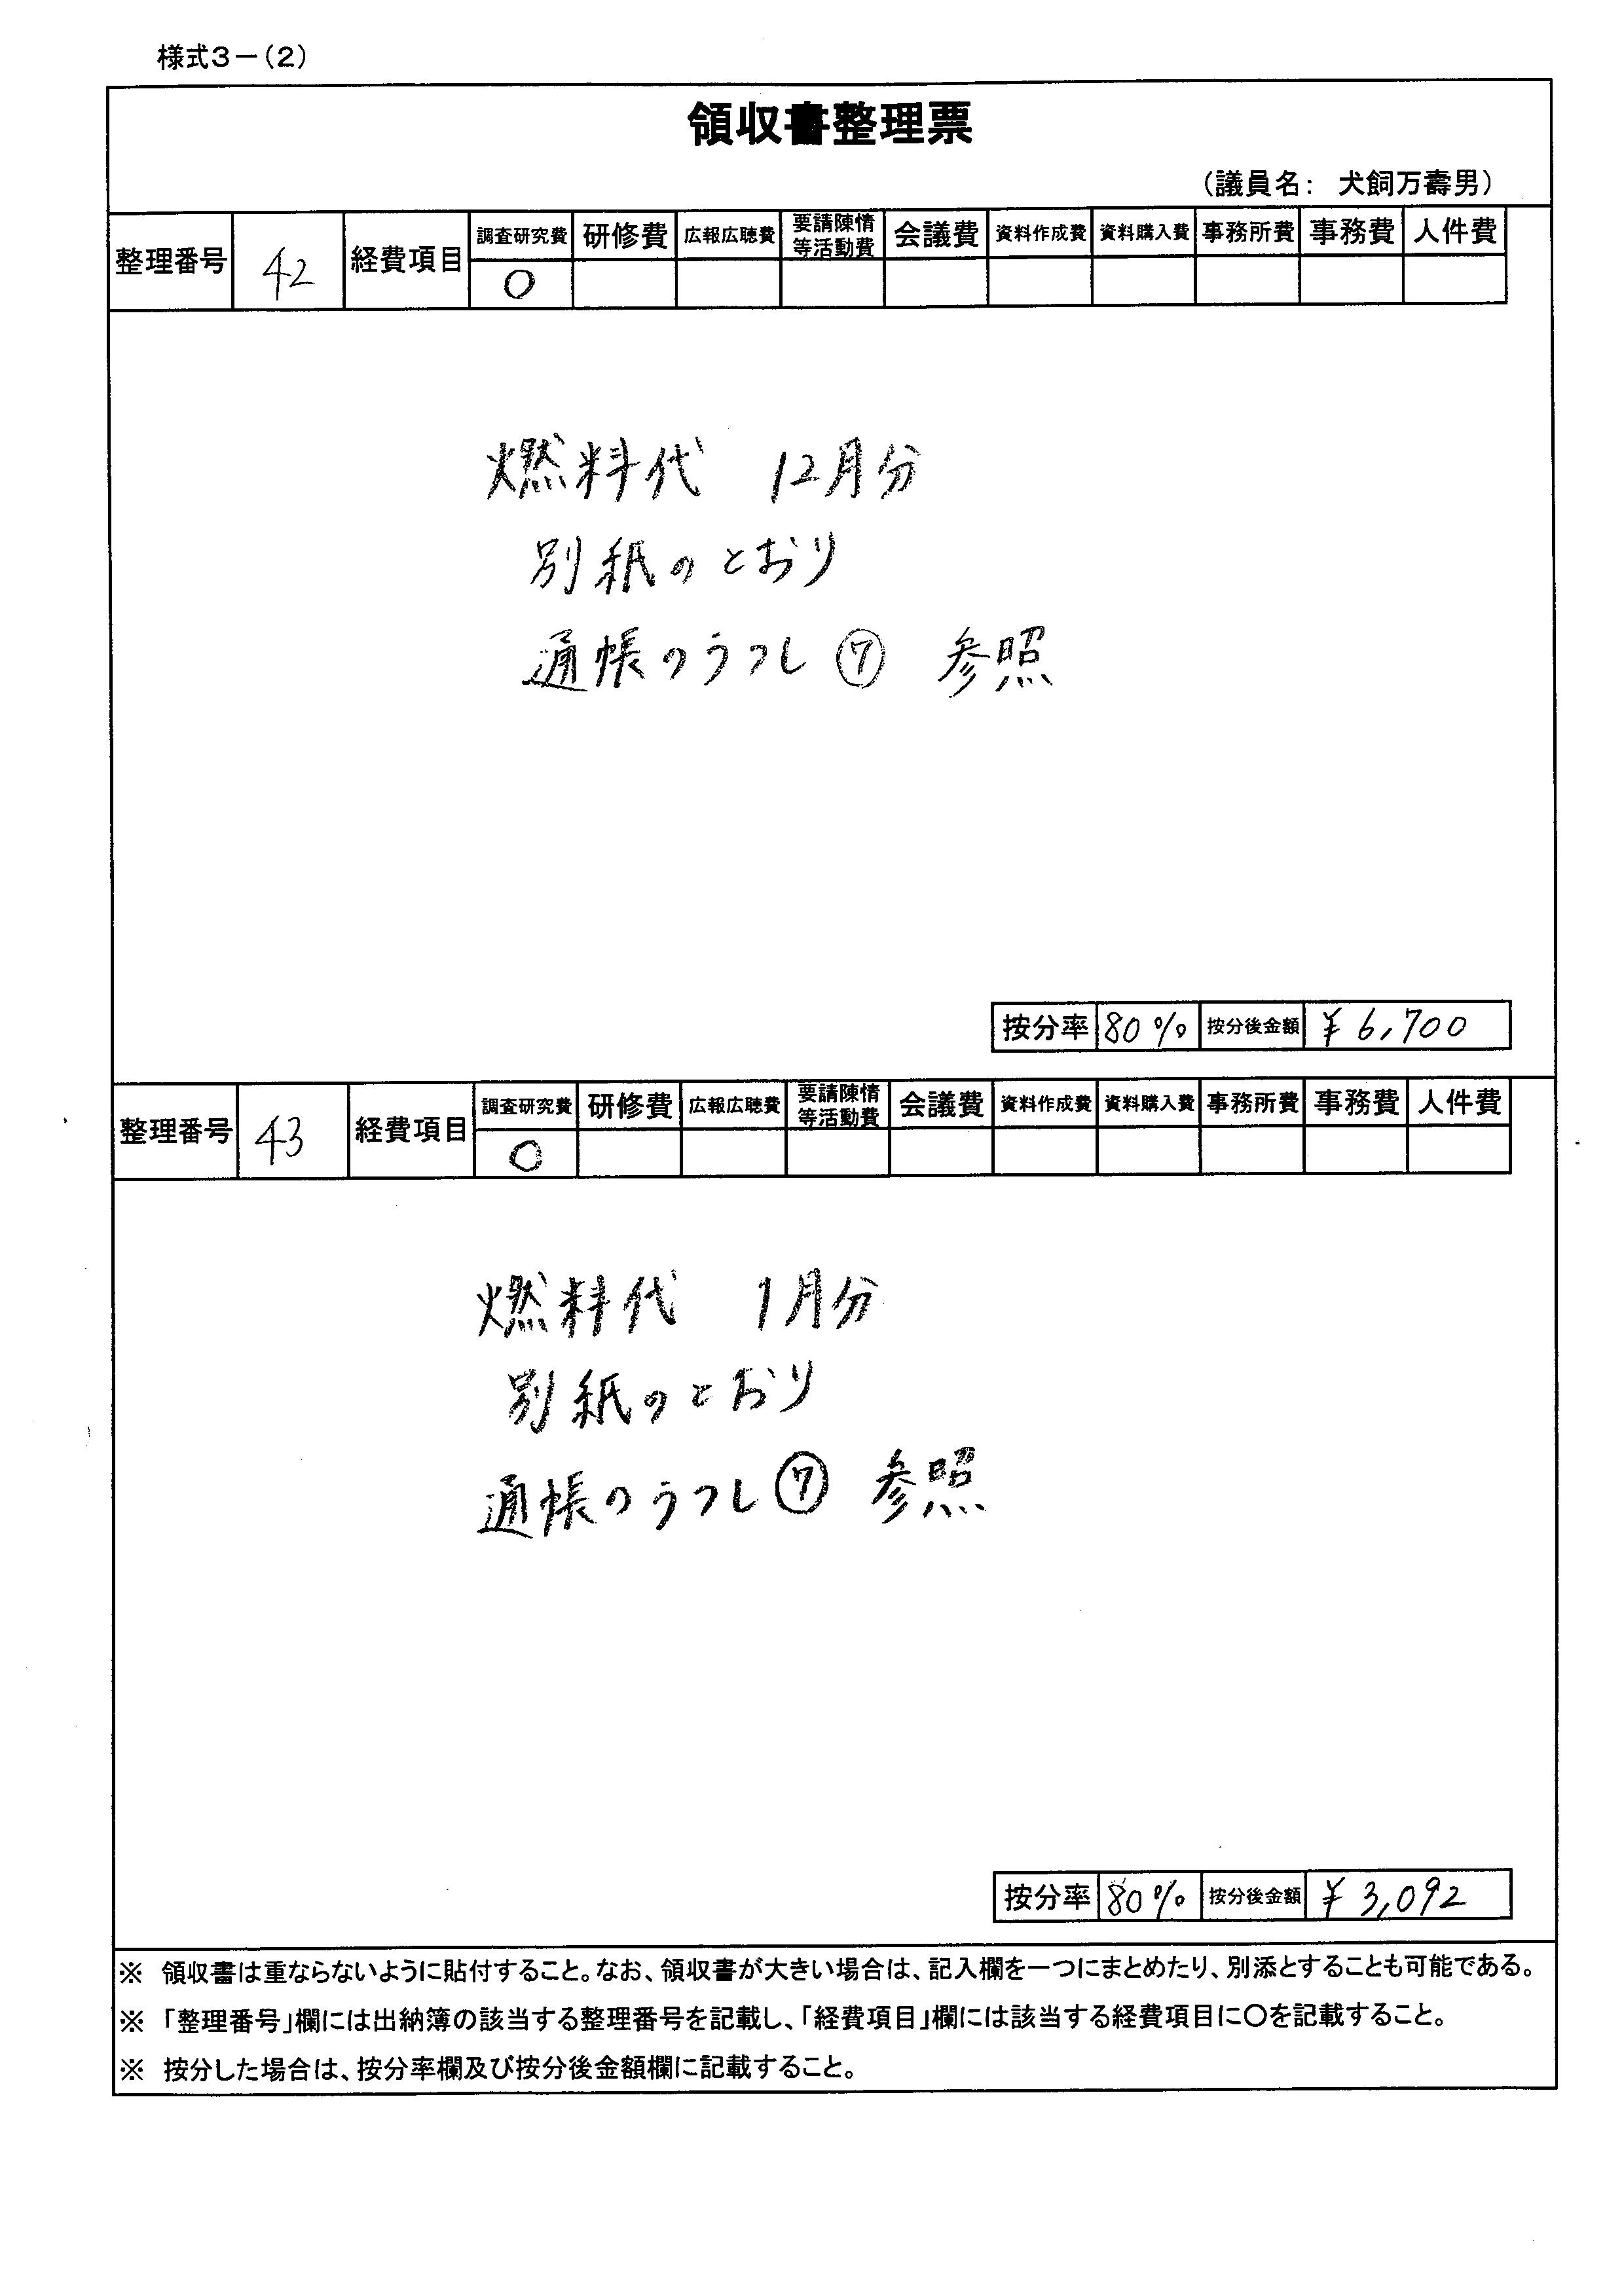 様式3－(2)
領収書整理票
(議員名： 犬飼万壽男)
整理番号 42 経費項目 調査研究費 研修費 広報広聴費 要請陳情等活動費 会議費 資料作成費 資料購入費 事務所費 事務費 人件費
○
燃料代 12月分
別紙のとおり
通帳のうつし⑦ 参照
按分率 80% 按分後金額 ¥6,700
整理番号 43 経費項目 調査研究費 研修費 広報広聴費 要請陳情等活動費 会議費 資料作成費 資料購入費 事務所費 事務費 人件費
○
燃料代 1月分
別紙のとおり
通帳のうつし⑦ 参照
按分率 80% 按分後金額 ¥3,092
※ 領収書は重ならないように貼付すること。なお、領収書が大きい場合は、記入欄を一つにまとめたり、別添とすることも可能である。
※ 「整理番号」欄には出納簿の該当する整理番号を記載し、「経費項目」欄には該当する経費項目に○を記載すること。
※ 按分した場合は、按分率欄及び按分後金額欄に記載すること。